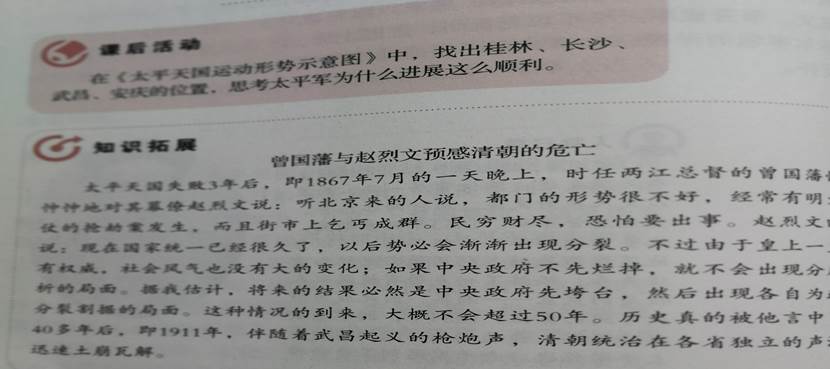 课后活动
在《太平天国运动形势示意图》中，找出桂林、长沙、
武昌、安庆的位置，思考太平军为什么进展这么顺利。
知识拓展
曾国藩与赵烈文预感清朝的危亡
太平天国失败3年后，即1867年7月的一天晚上，时任两江总督的曾国藩
忡忡地对其幕僚赵烈文说：听北京来的人说，都门的形势很不好，经常有明
仗的抢劫案发生，而且街市上乞丐成群。民穷财尽，恐怕要出事。赵烈文
说：现在国家统一已经很久了，以后势必会渐渐出现分裂。不过由于皇上一
有权威，社会风气也没有大的变化；如果中央政府不先烂掉，就不会出现分
析的局面。据我估计，将来的结果必然是中央政府先垮台，然后出现各自为
分裂割据的局面。这种情况的到来，大概不会超过50年。历史真的被他言中
40多年后，即1911年，伴随着武昌起义的枪炮声，清朝统治在各省独立的声
迅速土崩瓦解。